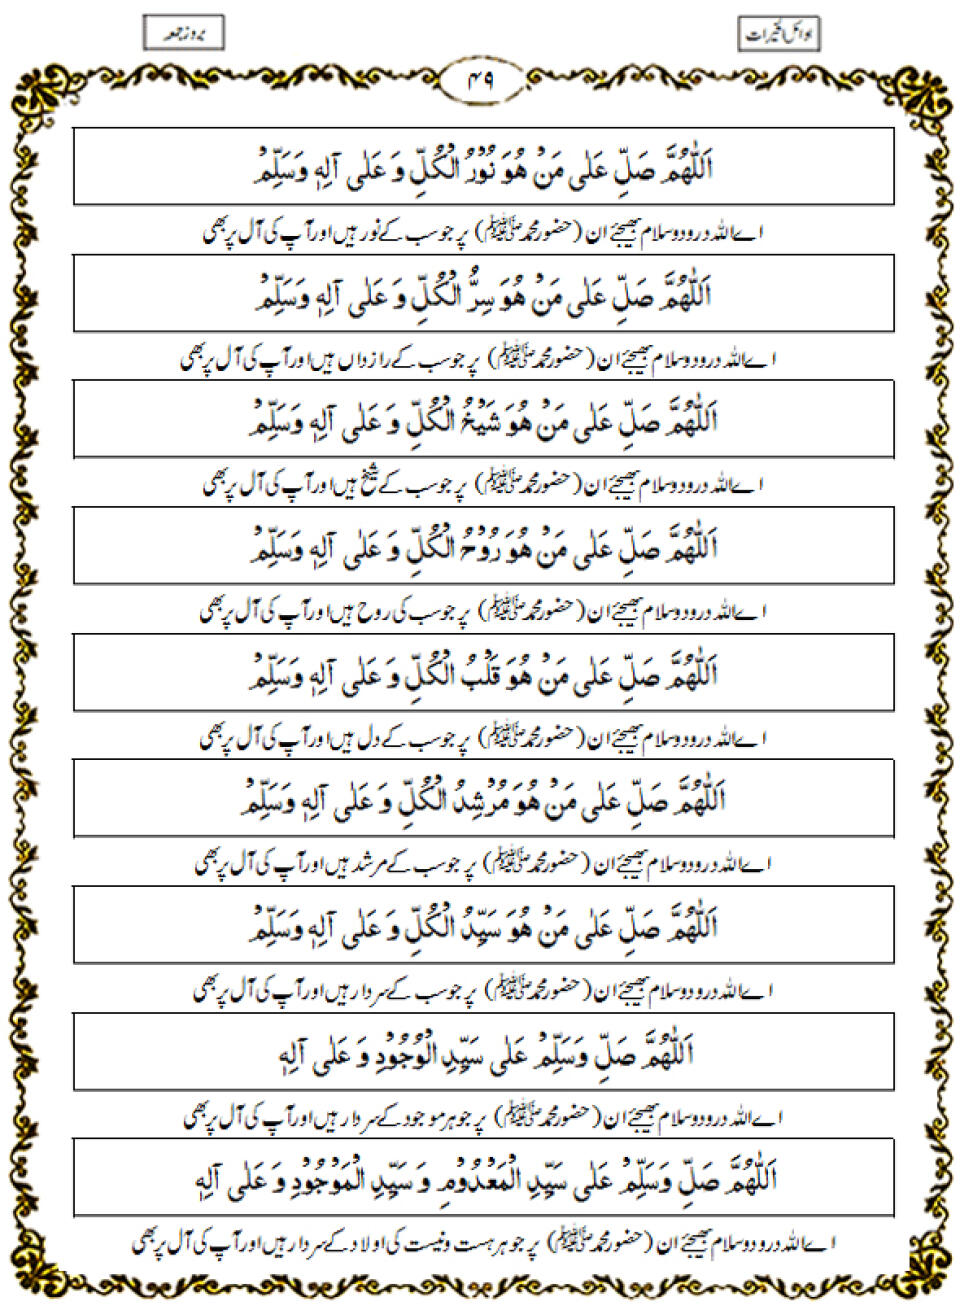 بروز جمعہ
۴۹
اَللّٰهُمَّ صَلِّ عَلٰی مَنْ هُوَ نُوْرُ الْکُلِّ وَ عَلٰی آلِهٖ وَسَلِّمْ
اے اللہ درود و سلام بھیجئے ان (حضور محمد ﷺ) پر جو سب کے نور ہیں اور آپ کی آل پر بھی
اَللّٰهُمَّ صَلِّ عَلٰی مَنْ هُوَ سِرُّ الْکُلِّ وَ عَلٰی آلِهٖ وَسَلِّمْ
اے اللہ درود و سلام بھیجئے ان (حضور محمد ﷺ) پر جو سب کے رازداں ہیں اور آپ کی آل پر بھی
اَللّٰهُمَّ صَلِّ عَلٰی مَنْ هُوَ شَیْخُ الْکُلِّ وَ عَلٰی آلِهٖ وَسَلِّمْ
اے اللہ درود و سلام بھیجئے ان (حضور محمد ﷺ) پر جو سب کے شیخ ہیں اور آپ کی آل پر بھی
اَللّٰهُمَّ صَلِّ عَلٰی مَنْ هُوَ رُوْحُ الْکُلِّ وَ عَلٰی آلِهٖ وَسَلِّمْ
اے اللہ درود و سلام بھیجئے ان (حضور محمد ﷺ) پر جو سب کی روح ہیں اور آپ کی آل پر بھی
اَللّٰهُمَّ صَلِّ عَلٰی مَنْ هُوَ قَلْبُ الْکُلِّ وَ عَلٰی آلِهٖ وَسَلِّمْ
اے اللہ درود و سلام بھیجئے ان (حضور محمد ﷺ) پر جو سب کے دل ہیں اور آپ کی آل پر بھی
اَللّٰهُمَّ صَلِّ عَلٰی مَنْ هُوَ مُرْشِدُ الْکُلِّ وَ عَلٰی آلِهٖ وَسَلِّمْ
اے اللہ درود و سلام بھیجئے ان (حضور محمد ﷺ) پر جو سب کے مرشد ہیں اور آپ کی آل پر بھی
اَللّٰهُمَّ صَلِّ عَلٰی مَنْ هُوَ سَیِّدُ الْکُلِّ وَ عَلٰی آلِهٖ وَسَلِّمْ
اے اللہ درود و سلام بھیجئے ان (حضور محمد ﷺ) پر جو سب کے سردار ہیں اور آپ کی آل پر بھی
اَللّٰهُمَّ صَلِّ وَسَلِّمْ عَلٰی سَیِّدِ الْوُجُوْدِ وَ عَلٰی آلِهٖ
اے اللہ درود و سلام بھیجئے ان (حضور محمد ﷺ) پر جو ہر موجود کے سردار ہیں اور آپ کی آل پر بھی
اَللّٰهُمَّ صَلِّ وَسَلِّمْ عَلٰی سَیِّدِ الْمَعْدُوْمِ وَ سَیِّدِ الْمَوْجُوْدِ وَ عَلٰی آلِهٖ
اے اللہ درود و سلام بھیجئے ان (حضور محمد ﷺ) پر جو ہر ہست و نیست کی اولاد کے سردار ہیں اور آپ کی آل پر بھی